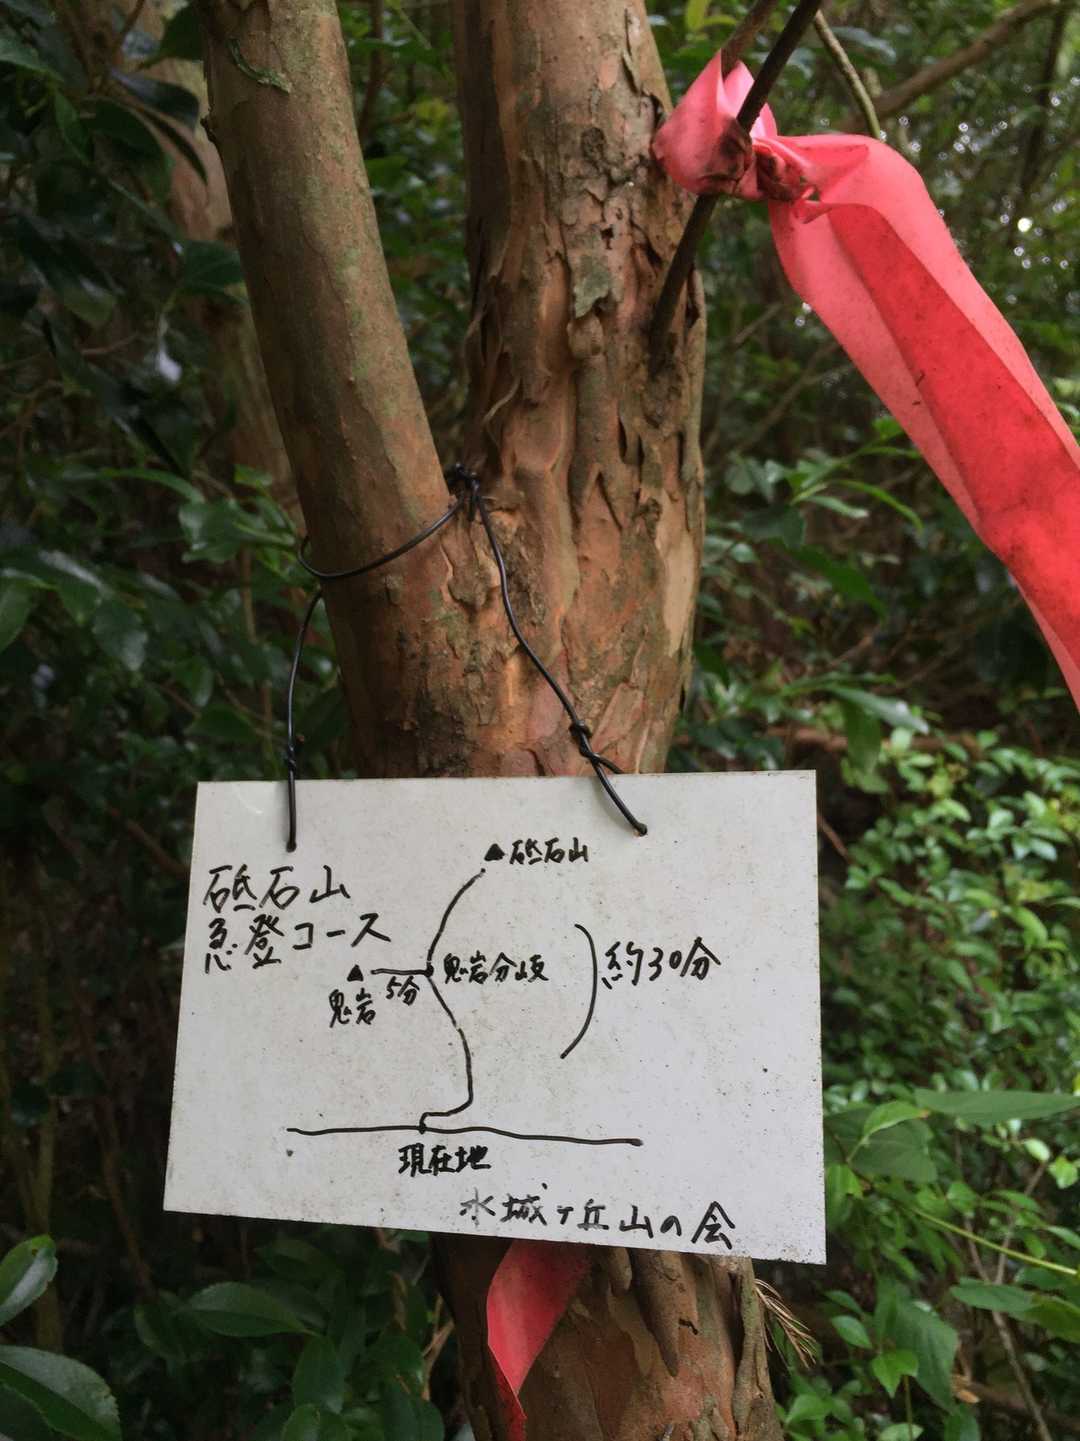 砥石山
急登コース
▲砥石山
鬼岩分岐
5分
▲
鬼岩
約30分
現在地
水城ヶ丘山の会